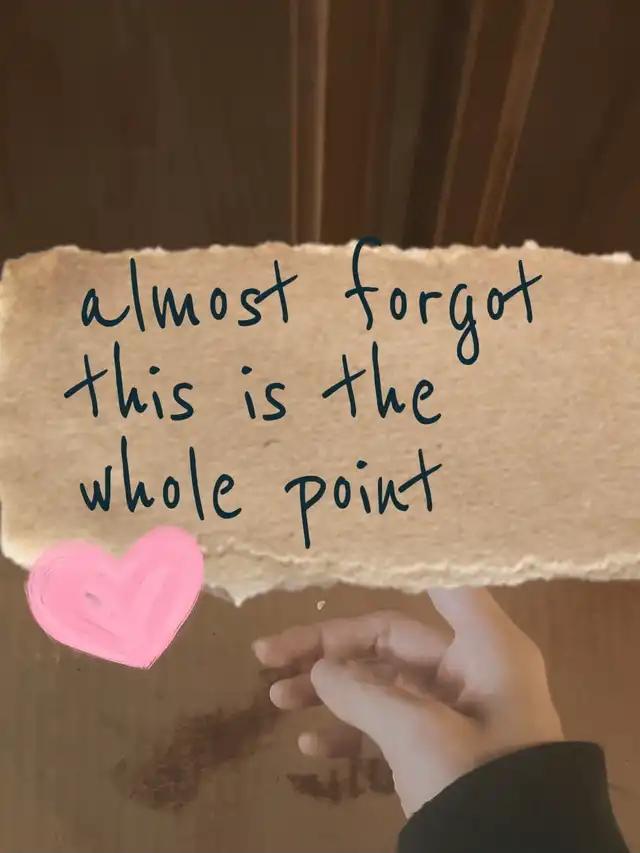 almost forgot
this is the
whole point